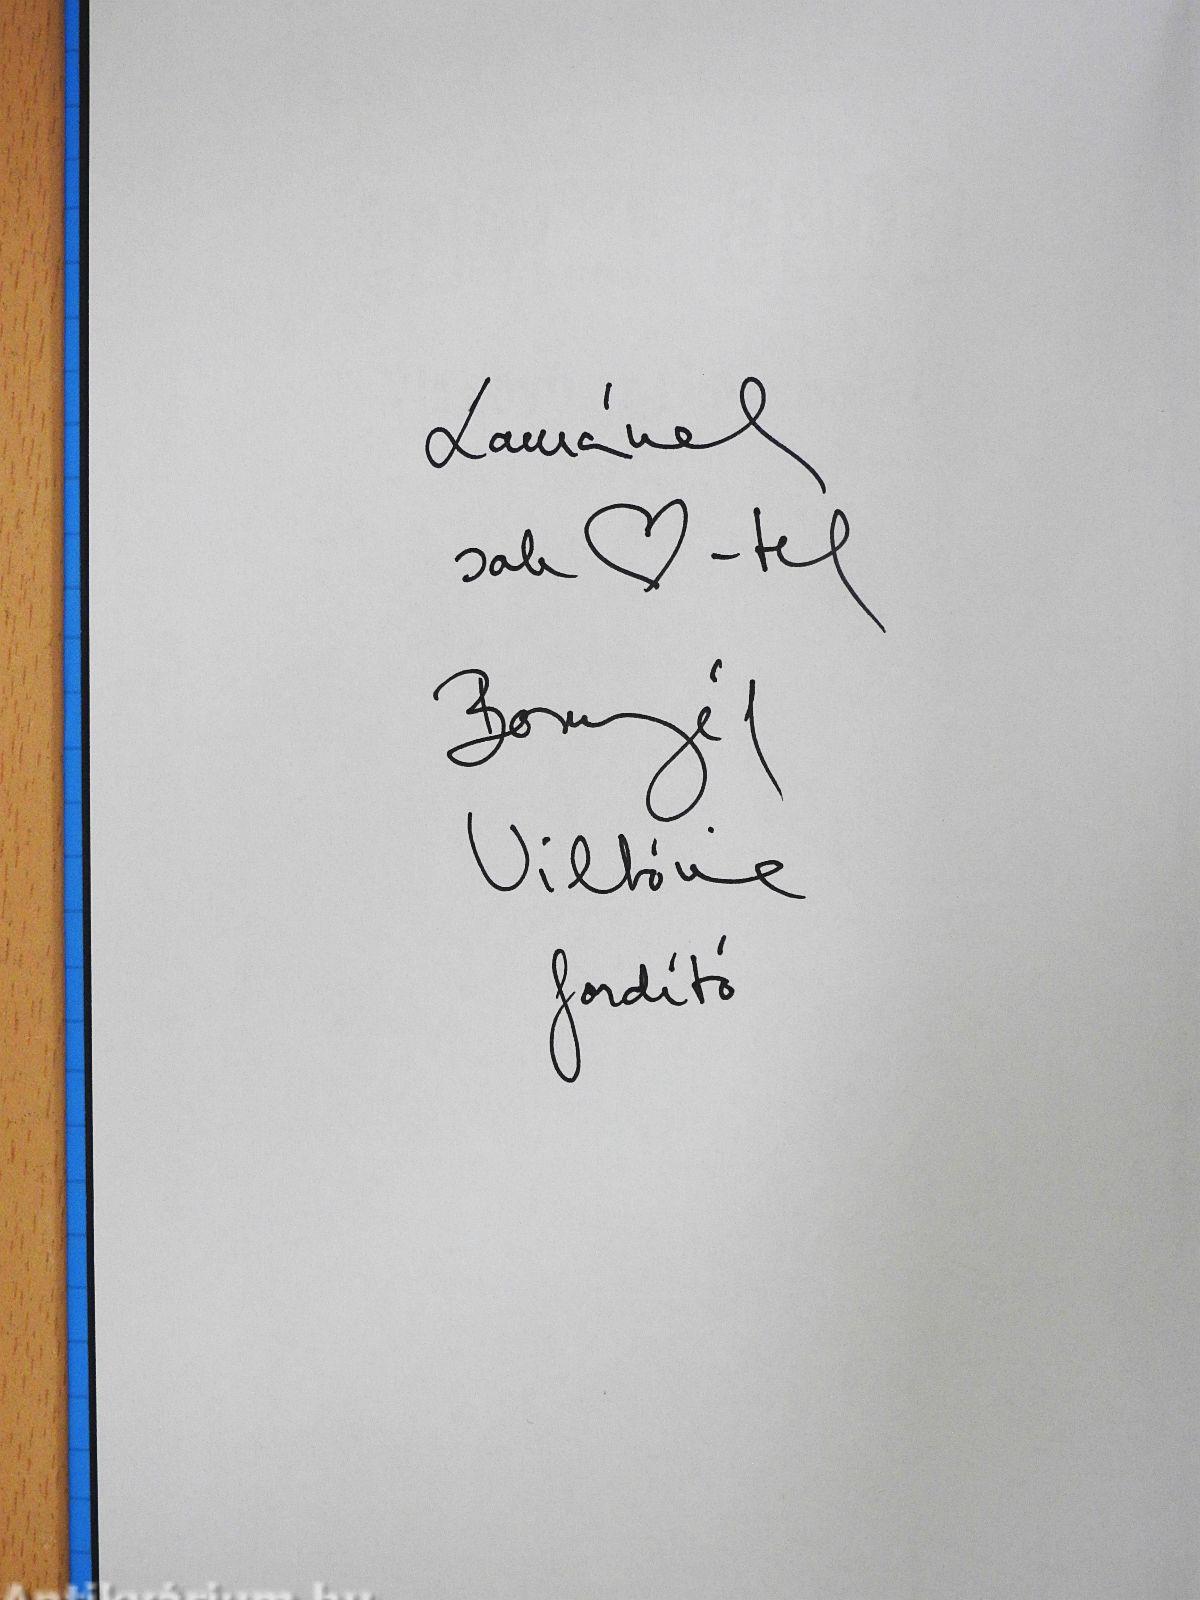 Lamának
sok ♡-tel
Bornyél
Viktória
fordító
Antikvárium.hu